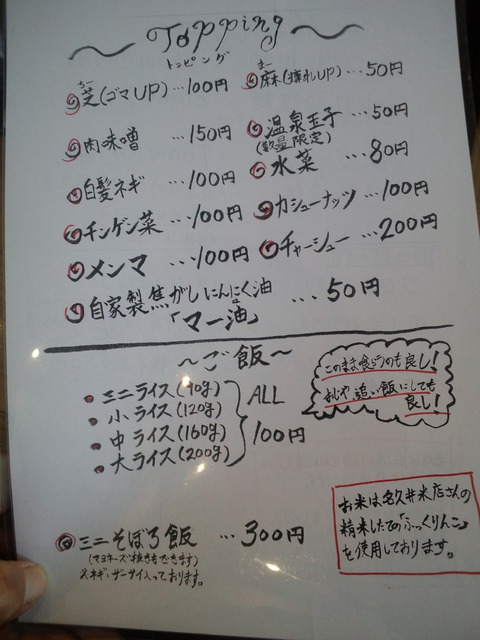 Topping
トッピング
芝(ゴマUP)…100円
麻(痺れUP)…50円
肉味噌 …150円
温泉玉子 …50円
(数量限定)
白髪ネギ …100円
水菜 …80円
チンゲン菜 …100円
カシューナッツ …100円
メンマ …100円
チャーシュー …200円
自家製焦がしにんにく油
「マー油」 …50円
〜ご飯〜
ミニライス(90g)
小ライス(120g)
中ライス(160g)
大ライス(200g)
ALL
100円
このまま食らうのも良し!
おじや、追い飯にしても
良し!
お米は名久井米店さんの
精米したての「ふっくりんこ」
を使用しております。
ミニそぼろ飯 …300円
(マヨネーズ抜きもできます)
※ネギ・ザーサイ入っております。